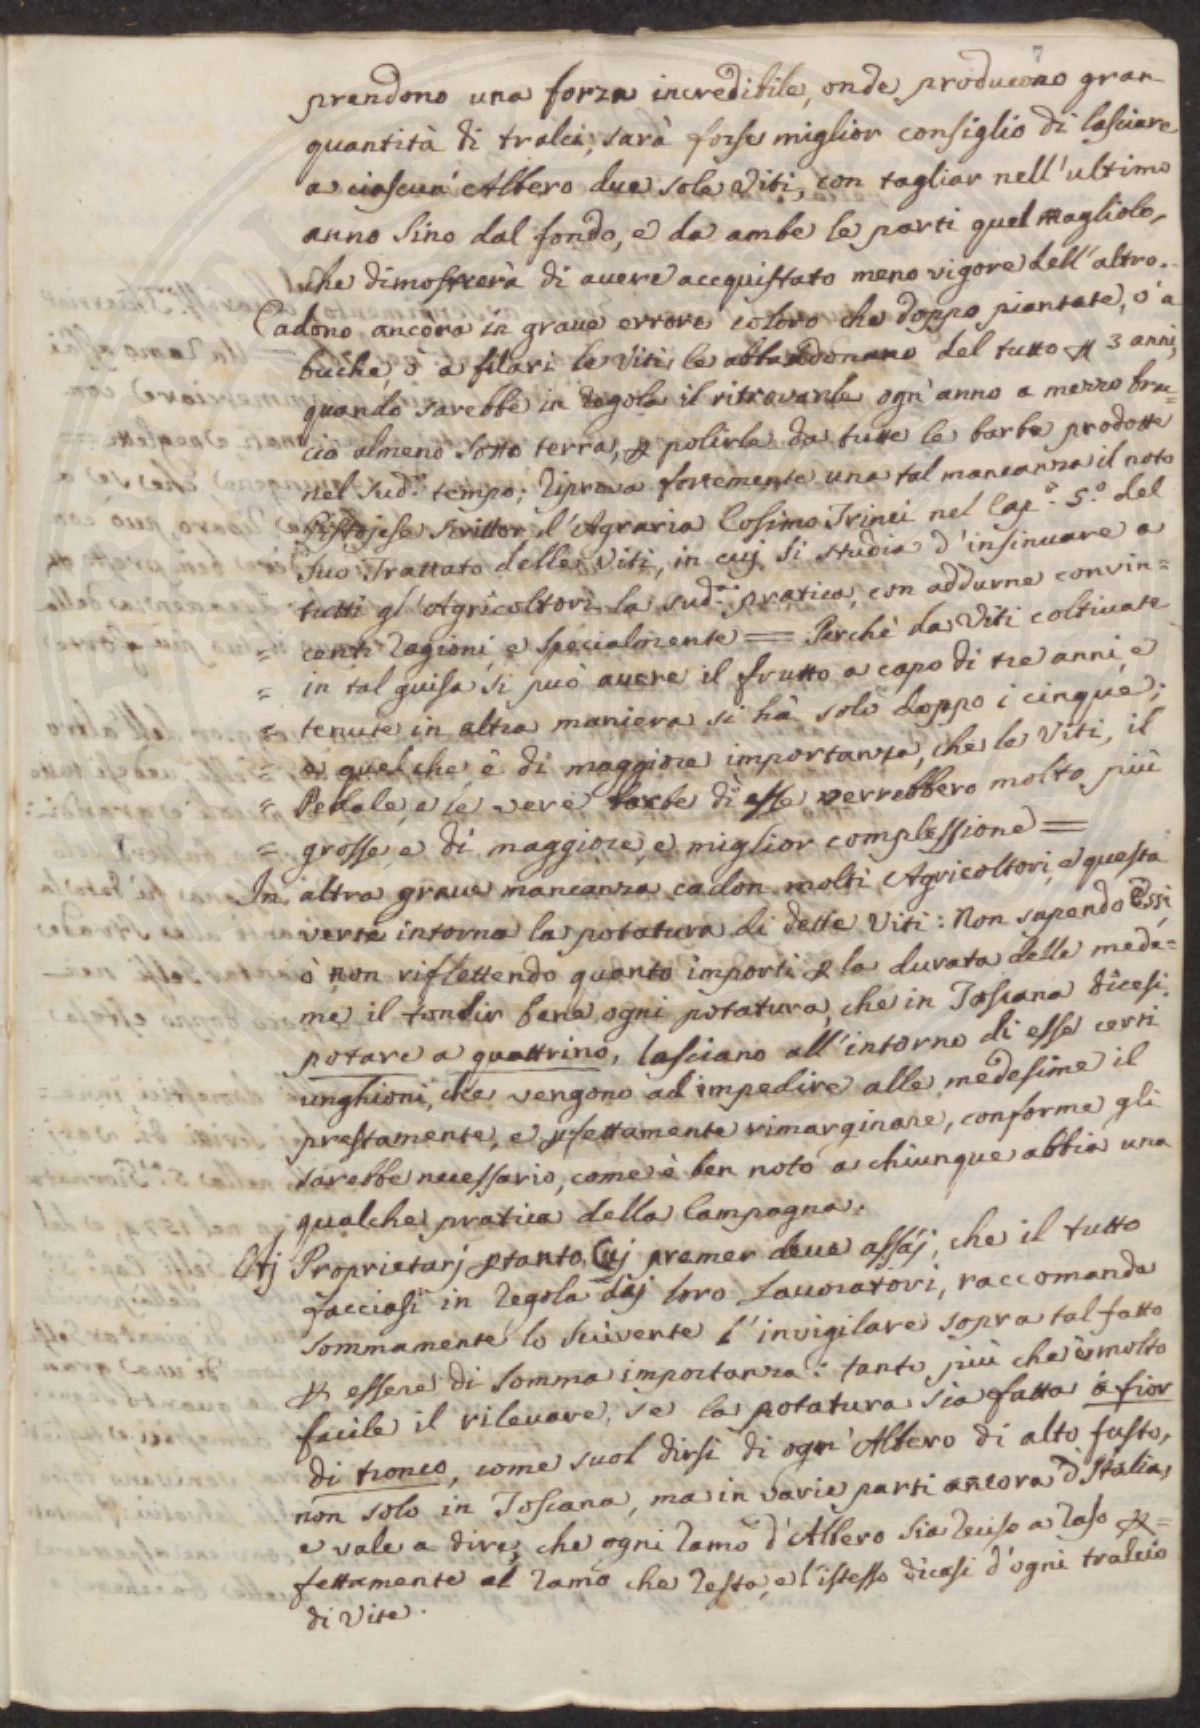 7
prendono una forza incredibile, onde producono gran
quantità di tralci; sarà forse miglior consiglio di lasciare
a ciascun' Albero due sole Viti, con tagliar nell'ultimo
anno sino dal fondo, e da ambe le parti quel magliolo,
che dimostrerà di avere accquistato meno vigore dell'altro.
Cadono ancora in grave errore coloro che doppo piantate, ò a
buche, ò a filari le Viti le abbandonano del tutto p 3 anni,
quando sarebbe in regola il ritrovarle ogn'anno a mezzo brac=
cio almeno sotto terra, p polirle da tutte le barbe prodotte
nel sud.º tempo; Riprova fortemente una tal mancanza il noto
Pistojese Scrittor d'Agraria Cosimo Trinci nel Cap.º 5.º del
suo Trattato delle Viti, in cuj si studia d'insinuare a
tutti gl'Agricoltori la sud.ª pratica, con addurne convin=
= centi ragioni, e specialmente == Perchè da Viti coltivate
= in tal guisa si può avere il frutto a capo di tre anni, e
= tenute in altra maniera si hà solo doppo i cinque;
= e quel che è di maggiore importanza, che le Viti, il
= Pedale, e le vere barbe di esse verrebbero molto più
= grosse, e di maggiore, e miglior complessione ==
In altra grave mancanza cadon molti Agricoltori, e questa
verte intorno la potatura di dette Viti: Non sapendo Essi,
ò non riflettendo quanto importi p la durata delle mede=
me il tondir bene ogni potatura, che in Toscana dicesi
potare a quattrino, lasciano all'intorno di esse certi
unghioni, che vengono ad impedire alle medesime il
prestamente, e pfettamente rimarginare, conforme gli
sarebbe necessario, come è ben noto a chiunque abbia una
qualche pratica della Campagna.
Aj Proprietarj ptanto, Cuj premer deve assaj, che il tutto
facciasi in regola daj loro Lavoratori, raccomanda
sommamente lo Scrivente l'invigilare sopra tal fatto
p essere di somma importanza: tanto più che è molto
facile il rilevare, se la potatura sia fatta à fior
di tronco, come suol dirsi di ogn'Albero di alto fusto,
non solo in Toscana, ma in varie parti ancora d'Italia,
e vale a dire, che ogni ramo d'Albero sia reciso a raso p=
fettamente al ramo che resta, e l'istesso dicasi d'ogni tralcio
di Vite.